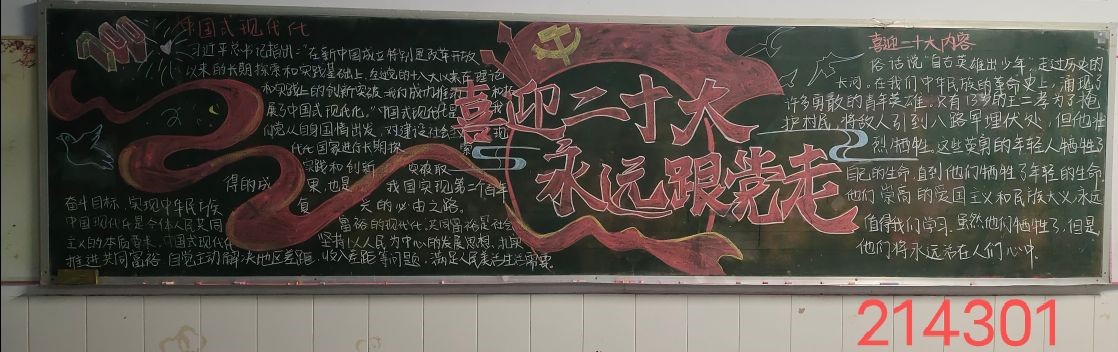 中国式现代化
习近平总书记指出:“在新中国成立特别是改革开放
以来的长期探索和实践基础上,经过党的十八大以来在理论
和实践上的创新突破,我们成功推进和拓
展了中国式现代化。”中国式现代化是我
们党从自身国情出发,对建设社会主义现
代化国家进行长期探索
实践和创新突破取
得的成果,也是我国实现第二个百年
奋斗目标,实现中华民族复兴的必由之路。
中国现代化是全体人民共同富裕的现代化,共同富裕是社会
主义的本质要求,中国式现代化坚持以人民为中心的发展思想,扎取
推进共同富裕,自觉主动解决地区差距,收入差距等问题,满足人民美活生活需要。
喜迎二十大
永远跟党走
喜迎二十大内容
俗话说“自古英雄出少年”走过历史的
长河,在我们中华民族的革命史上,涌现了
许多勇敢的青年英雄,只有13岁的王二孝为了掩
护村民,将敌人引到八路军埋伏处,但他壮
烈牺牲。这些英勇的年轻人牺牲了
自己的生命,直到他们牺牲了年轻的生命
他们崇高的爱国主义和民族大义,永远
值得我们学习,虽然他们牺牲了,但是
他们将永远活在人们心中。
214301